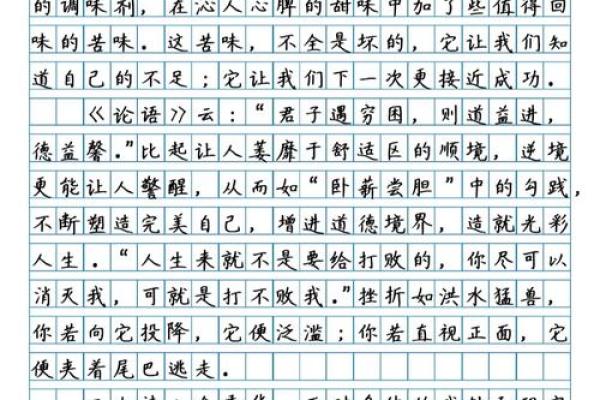 的调味剂，在沁人心脾的甜味中加了些值得回
味的苦味．这苦味，不全是坏的，它让我们知
道自己的不足；它让我们下一次更接近成功．
《论语》云：“君子遇穷困，则道益进，
德益馨．”比起让人萎靡于舒适区的顺境，逆境
更能让人警醒，从而如“卧薪尝胆”中的勾践，
不断塑造完美自己，增进道德境界，造就光彩
人生．“人生来就不是要给打败的，你尽可以
消灭我，可就是打不败我．”挫折如洪水猛兽，
你若向它投降，它便泛滥；你若直视正面，它
便夹着尾巴逃走．